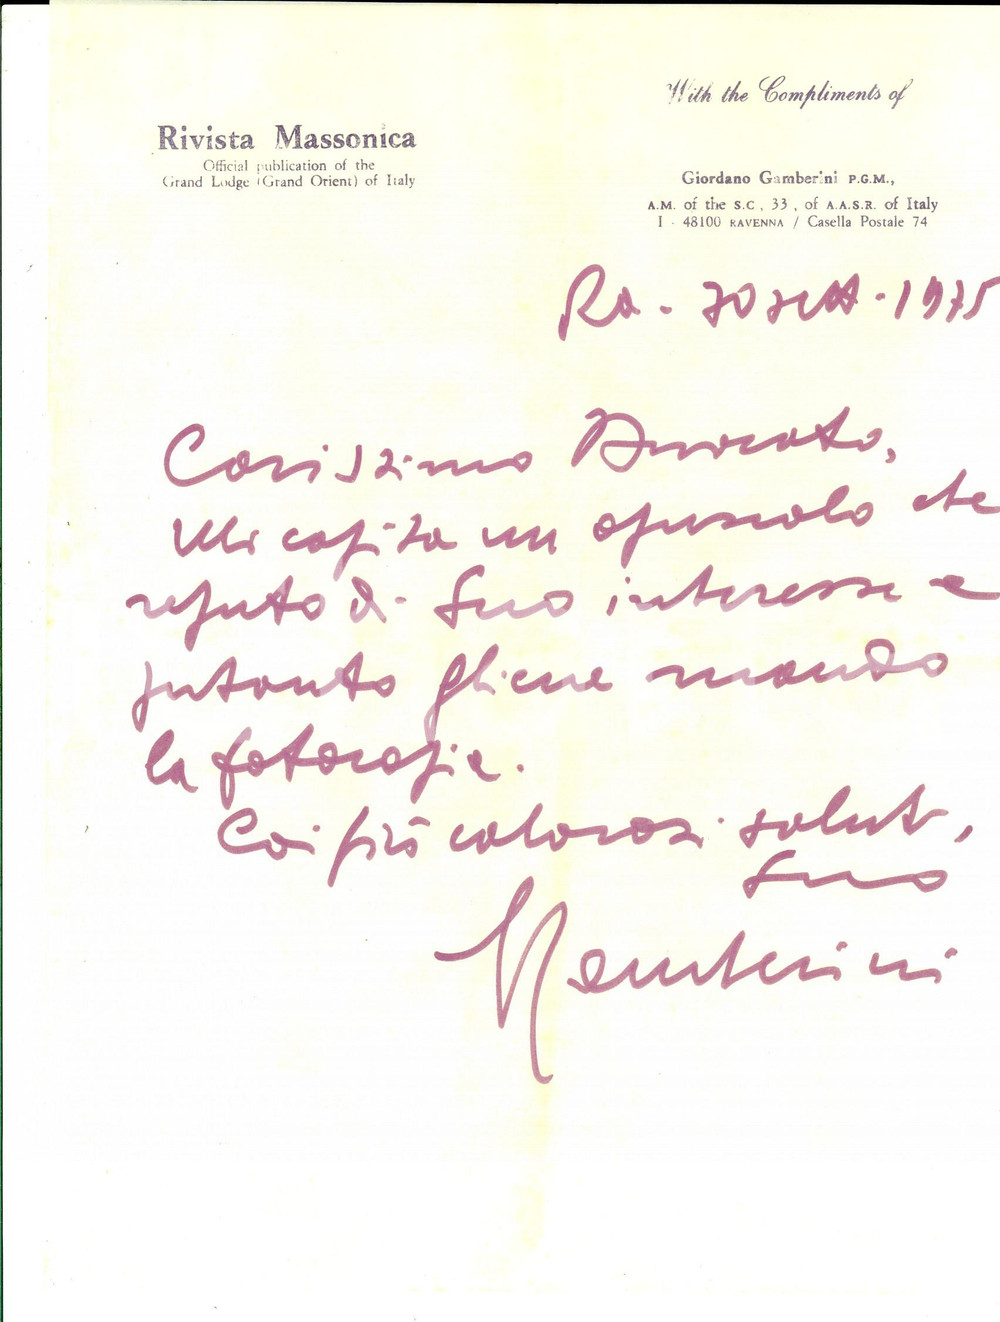 Rivista Massonica
Official publication of the
Grand Lodge (Grand Orient) of Italy
With the Compliments of
Giordano Gamberini P.G.M.,
A.M. of the S.C, 33, of A.A.S.R. of Italy
I - 48100 RAVENNA / Casella Postale 74
Ra - 30 sett - 1975
Carissimo Avvocato,
Mi capita un opuscolo che
reputo di Suo interesse e
pertanto gliene mando
la fotocopia.
Coi più calorosi saluti,
Suo
Gamberini